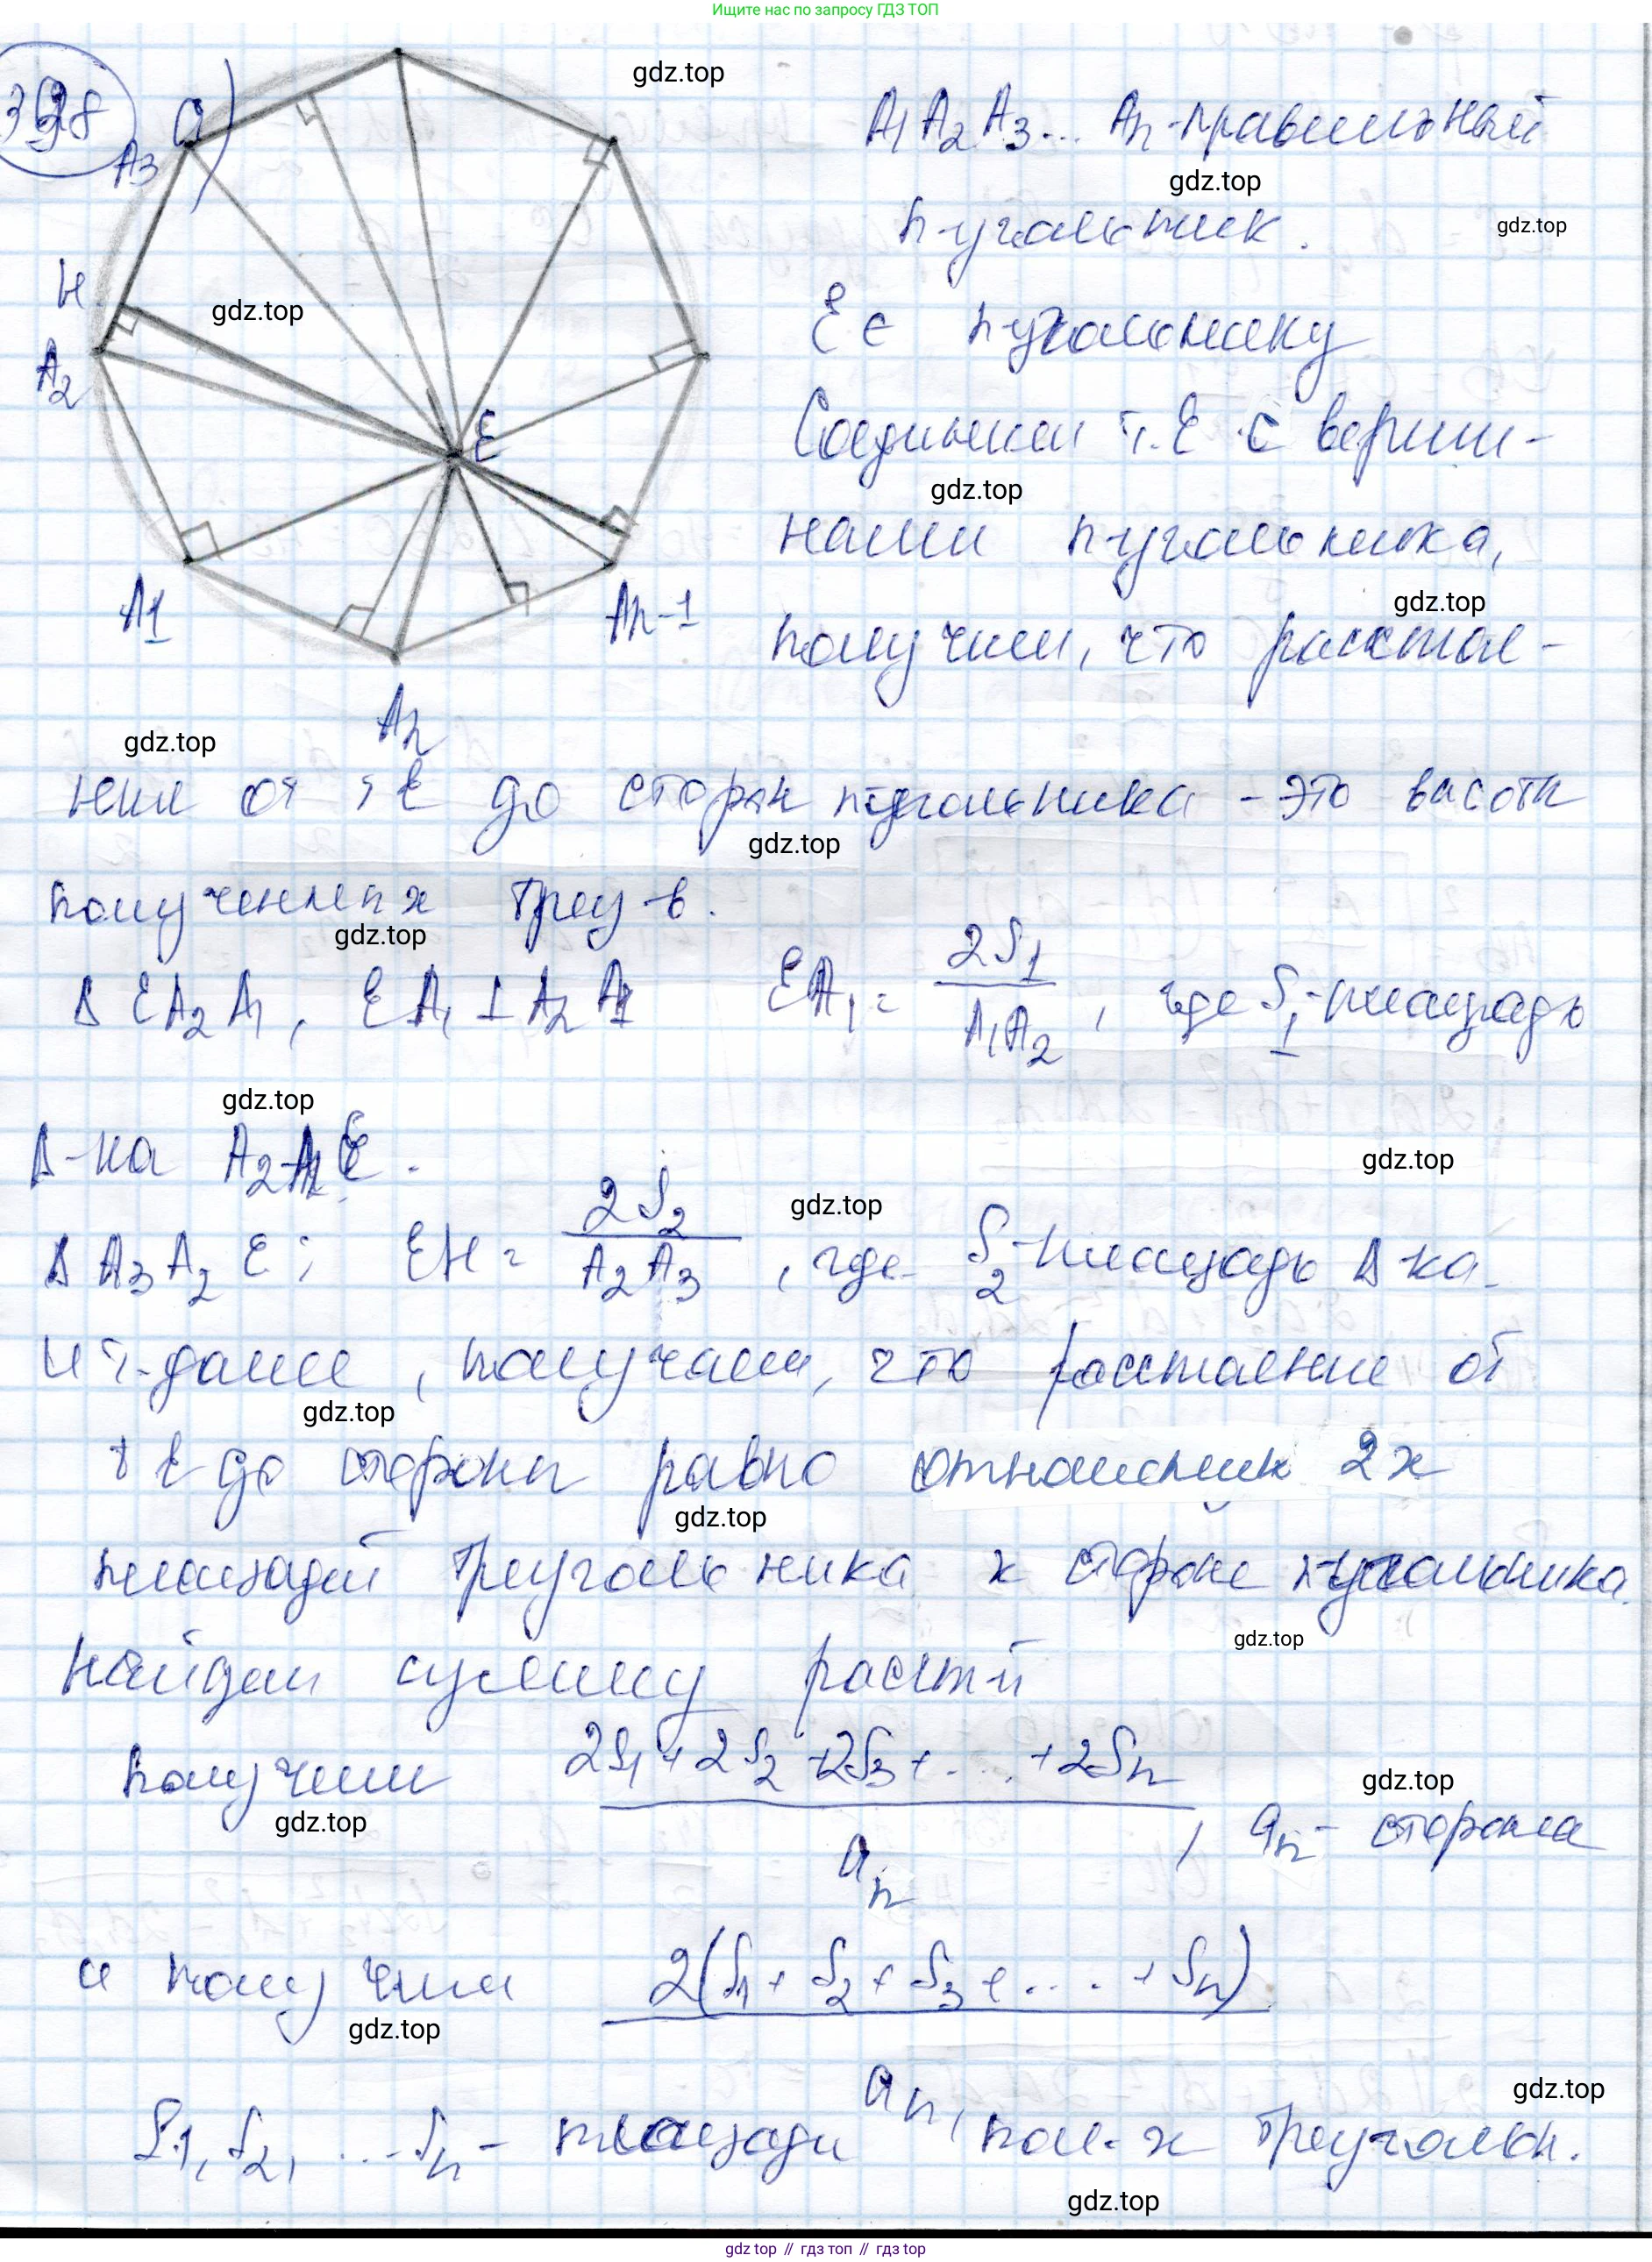 Ищите нас по запросу ГДЗ ТОП
398 а)
gdz.top
A₁ A₂ A₃... Aₙ - правильный
A₃
gdz.top
n-угольник.
gdz.top
H
gdz.top
E ∈ n-угольнику
A₂
E
Соединим т. E с верши-
gdz.top
нами n-угольника,
gdz.top
A₁
Aₙ₋₁
получим, что расстоя-
Aₙ
gdz.top
ния от т E до сторон n-угольника - это высоты
gdz.top
полученных треу-в.
gdz.top
Δ EA₂A₁, EA₁ ⊥ A₂A₁ EA₁ = 2S₁ / A₁A₂, где S₁ - площадь
gdz.top
Δ-ка A₂A₁E.
gdz.top
gdz.top
Δ A₃A₂E; EH = 2S₂ / A₂A₃, где S₂ - площадь Δ-ка.
и т.далее, получаем, что расстояние от
gdz.top
т E до стороны равно отношению 2х
gdz.top
площадей треугольника к стороне n-угольника.
gdz.top
Найдем сумму расст-й
Получим 2S₁ + 2S₂ + 2S₃ + ... + 2Sₙ / aₙ, aₙ - сторона
gdz.top
gdz.top
и получим 2(S₁ + S₂ + S₃ + .... + Sₙ) / aₙ,
gdz.top
gdz.top
S₁, S₂, ... Sₙ - площади пол-х треугольн.
gdz.top
gdz top // гдз топ // гдз top